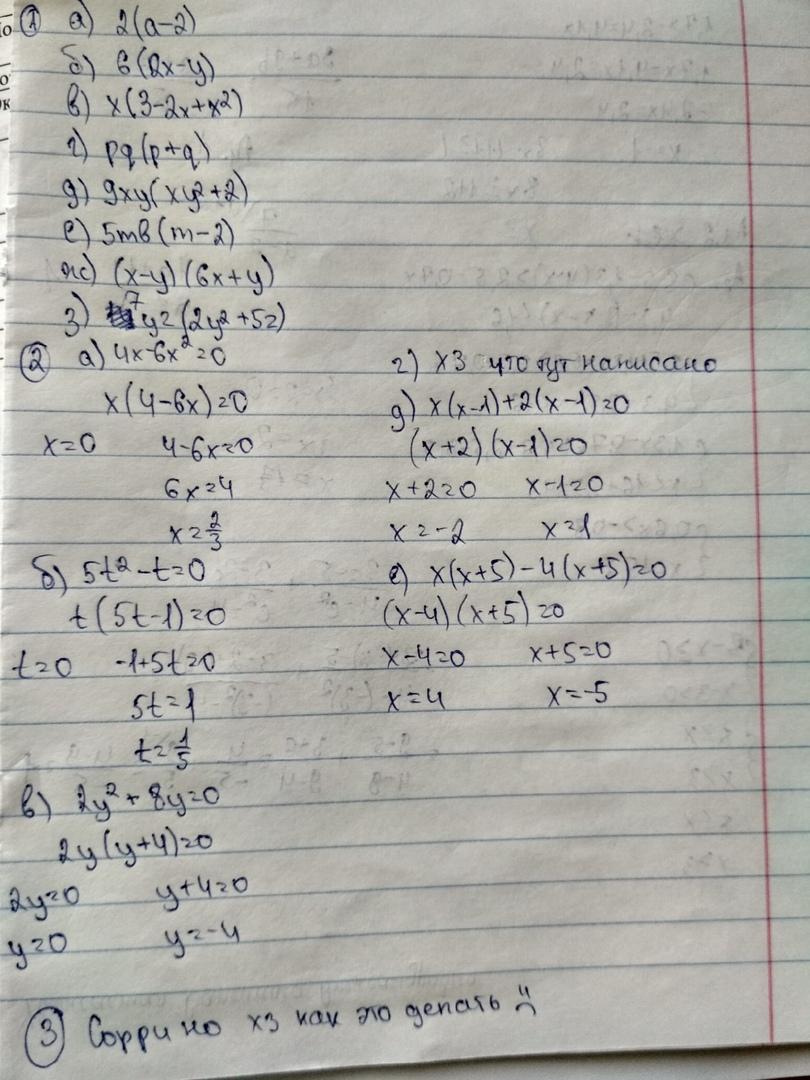 ① а) 2(a-2)
б) 6(2x-y)
в) x(3-2x+x²)
г) pq(p+q)
д) 9xy(xy²+2)
е) 5mb(m-2)
ж) (x-y)(6x+y)
з) 7yz(2y²+5z)
② а) 4x-6x²=0
x(4-6x)=0
x=0 4-6x=0
6x=4
x=2/3
б) 5t²-t=0
t(5t-1)=0
t=0 -1+5t=0
5t=1
t=1/5
в) 2y²+8y=0
2y(y+4)=0
2y=0 y+4=0
y=0 y=-4
г) хз что тут написано
д) x(x-1)+2(x-1)=0
(x+2)(x-1)=0
x+2=0 x-1=0
x=-2 x=1
е) x(x+5)-4(x+5)=0
(x-4)(x+5)=0
x-4=0 x+5=0
x=4 x=-5
③ Сорри но хз как это делать